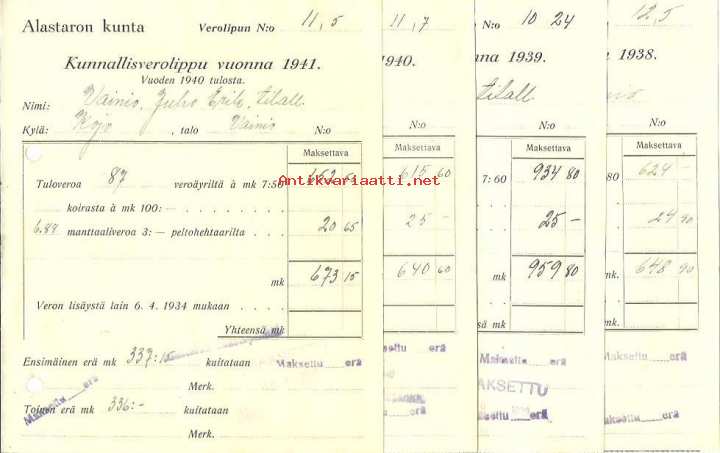 Alastaron kunta
Verolipun N:o 11,5
Kunnallisverolippu vuonna 1941.
Vuoden 1940 tulosta.
Nimi: Vainio, Juho Erik, tilall.
Kylä: Kojo, talo Vainio N:o
Maksettava
Tuloveroa 87 veroäyriltä à mk 7:50 652 50
koirasta à mk 100:—
6.89 manttaaliveroa 3:— peltohehtaarilta 20 65
mk 673 15
Veron lisäystä lain 6. 4. 1934 mukaan
Yhteensä mk
Ensimäinen erä mk 337:15 kuitataan
Maksettu erä
Merk.
Maksettu erä
Toinen erä mk 336:- kuitataan
Merk.
11,7
1940.
N:o
Maksettava
615 60
25 —
640 60
Maksettu erä
Maksettu erä
N:o 10 24
nna 1939.
tilall.
N:o
Maksettava
7:60 934 80
25 —
mk 959 80
sä mk
Maksettu erä
MAKSETTU
Maksettu erä
12,5
1938.
N:o
Maksettava
80 624 —
24 90
mk. 648 90
mk.
Maksettu erä
Maksettu erä
Antikvariaatti.net